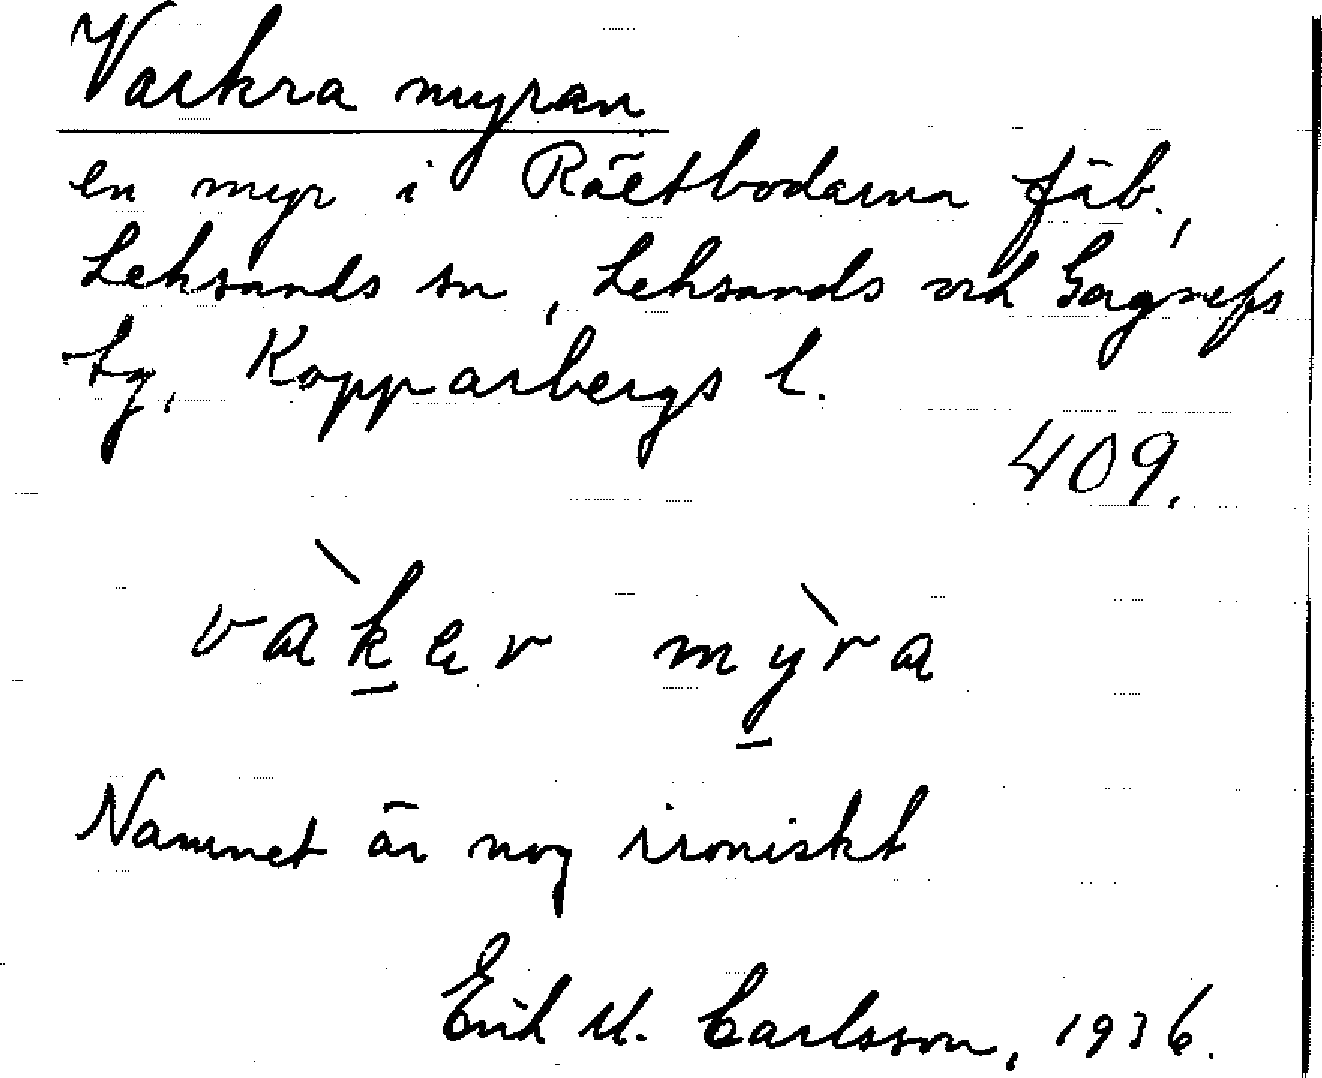 Vackra myran
en myr i Rältbodarna fäb.,
Leksands sn, Leksands och Gagnefs
tg, Kopparbergs l.
409.
vàkər myra
Namnet är nog ironiskt
Erik M. Carlsson, 1936.